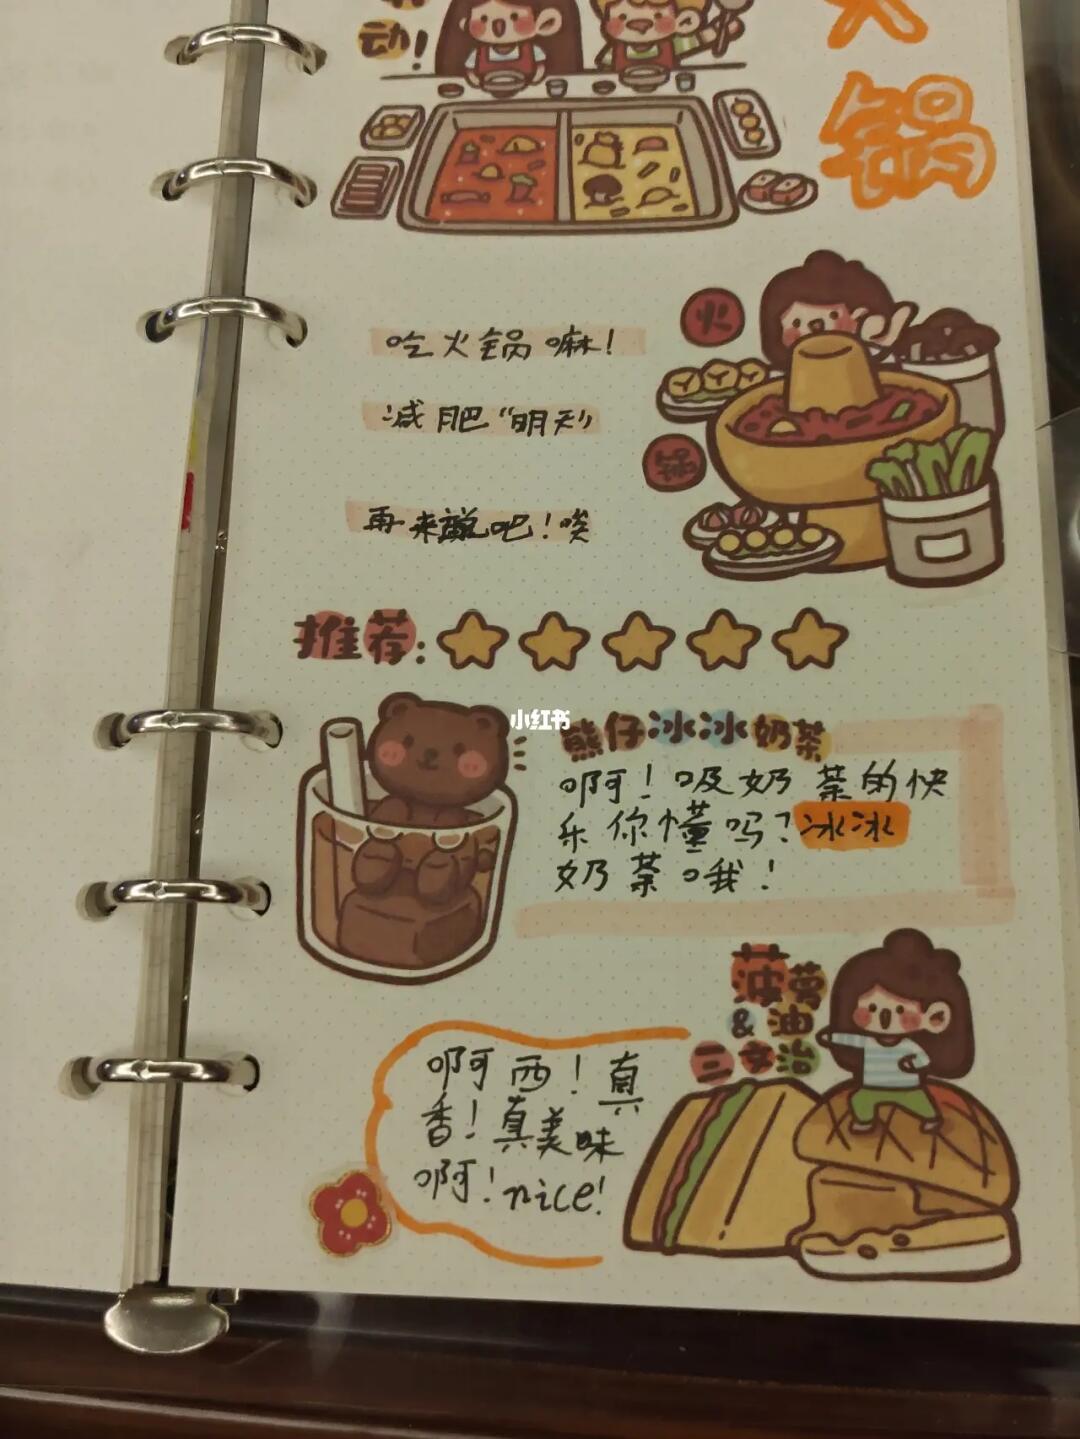 动!
火
锅
火
吃火锅嘛!
减肥"明天"
锅
再来说吧!唉
推荐:
小红书
熊仔冰冰奶茶
啊!吸奶茶的快
乐你懂吗?冰冰
奶茶哦!
菠萝
&油
三文治
啊西!真
香!真美味
啊!nice!